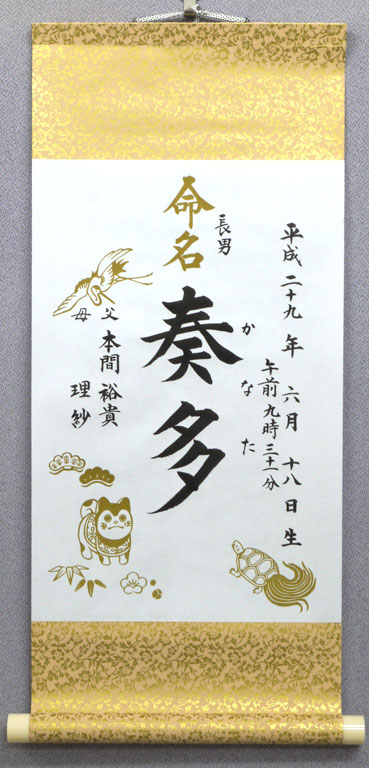 平成二十九年 六月 十八日生
午前九時三十一分
命名
長男
奏多
かなた
父 本間 裕貴
母 理紗